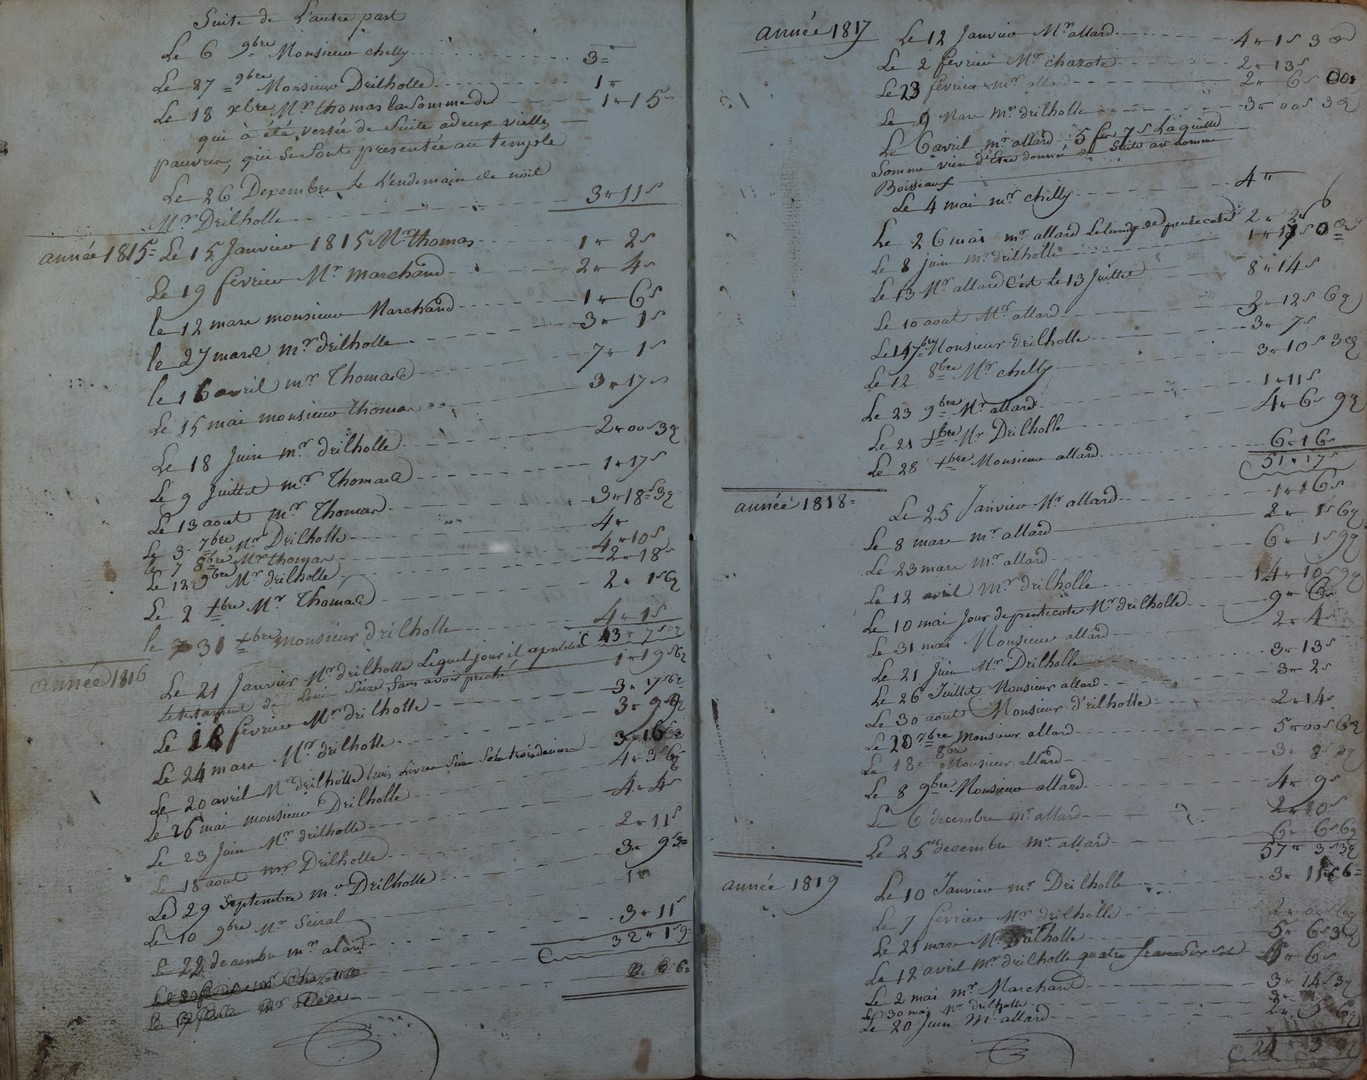 Suite de L'autre part
Le 6 9bre Monsieur chelly 3=
Le 27 9bre Monsieur Drilholle 1"
Le 18 xbre Mr thomas la Somme de 1 " 15
qui à été versée de Suite a deux vielles
pauvres, qui se sont presentée au temple
Le 26 Dexembre Le L'endemain de noël
Mr Drilholle 3 " 11 s
année 1815 Le 15 Janvier 1815 Mr thomas 1 " 2 s
Le 19 février Mr marchand 2 " 4 s
le 12 mars monsieur Marchand 1 " 6 s
le 27 mars mr drilholle 3 " 1 s
le 16 avril mr Thomas 7 " 1 s
Le 15 mai monsieur thomas 3 " 17 s
Le 18 Juin mr drilholle 2 " 00 s 3 d
Le 9 Juillet mr Thomas 1 " 17 s
Le 13 aout mr Thomas 3 " 18 s 3 d
Le 3 7bre Mr Drilholle 4 "
Le 7 8bre Mr thomas 4 " 10 s
Le 12 9bre Mr drilholle 2 " 18 s
Le 2 xbre Mr Thomas 2 " 1 s 6 d
le 31 xbre monsieur drilholle 4 " 1 s
43 " 7 s
année 1816 Le 21 Janvier Mr drilholle Lequel jour il a publié 1 " 19 s 6 d
le testament de Loui Seize Sans avoir preché
Le 18 février Mr drilholle 3 " 7 s 6 d
Le 24 mars Mr drilholle 3 " 9 s
Le 20 avril Mr drilholle trois Livres Seize Sols trois deniers 3 " 16 s 3
Le 26 mai monsieur Drilholle 4 " 3 s 6 d
Le 23 Juin Mr drilholle 4 " 4 s
Le 18 aout mr Drilholle 2 " 11 s
Le 29 Septembre mr Drilholle 3 " 9 s 3
Le 10 9bre Mr Seiral 1 "
Le 22 decembre mr alard 3 " 11 s
32 " 1 s 9
année 1817 Le 12 Janvier Mr allard 4 " 1 s 3 d
Le 2 février Mr chazote 2 " 13 s
Le 23 février mr allard 2 " 6 s
Le 9 Mars mr drilholle 3 " 00 s 3 d
Le 6 avril mr allard, 5 fr 7 s Laquelle
Somme vien d'etre donner de Suite au nommé
Boisseauf
Le 4 mai mr chilly 4 "
Le 26 mai mr allard Le lundy de pentecoté 2 " 2 s
Le 8 juin mr drilholle
Le 13 Mr allard C'ést le 13 Juillet 8 " 14 s
Le 10 aout Mr allard 3 " 12 s 6 d
Le 14 7bre Monsieur drilholle 3 " 7 s
Le 12 8bre Mr chelly 3 " 10 s 3 d
Le 23 9bre Mr allard 1 " 11 s
Le 21 xbre Mr Drilholle 4 " 6 s 9 d
Le 28 xbre Monsieur allard 6 " 16 s
51 " 17 s
année 1818 Le 25 Janvier Mr allard 1 " 16 s
Le 8 mars mr allard 2 " 1 s 6 d
Le 23 mars mr allard 6 " 1 s 9 d
Le 12 avril Mr drilholle 14 " 10 s 9 d
Le 10 mai Jour de penticote Mr drilholle 9 " 6 s
Le 31 mai Monsieur allard 2 " 4 s
Le 21 Juin Mr Drilholle 3 " 13 s
Le 26 Juillet Monsieur allard 3 " 2 s
Le 30 aout Monsieur d'rilholle 2 " 14 s
Le 20 7bre Monsieur allard 5 " 00 s 6 d
Le 18 8bre Monsieur allard 3 " 8 s
Le 8 9bre Monsieur allard 4 " 9 s
Le 6 decembre mr allard 2 " 10 s
Le 25 decembre mr allard 6 " 6 s 6 d
57 " 3 s 3 d
année 1819 Le 10 Janvier mr Drilholle 3 " 11 s 6
Le 7 février Mr drilholle
Le 21 mars Mr Drilholle 5 " 6 s 3 d
Le 12 avril Mr drilholle quatre francs Six sol 4 " 6 s
Le 2 mai mr Marchand 3 " 14 s 3 d
Le 30 mai Mr drilholle
Le 20 Juin Mr allard
24 " 3